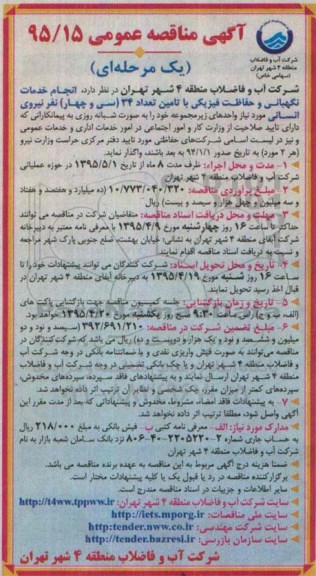 آگهی مناقصه عمومی ۹۵/۱۵
(یک مرحله‌ای)
شرکت آب و فاضلاب
منطقه ۴ شهر تهران
(سهامی خاص)
شرکت آب و فاضلاب منطقه ۴ شهر تهران در نظر دارد، انجام خدمات
نگهبانی و حفاظت فیزیکی با تامین تعداد ۳۴ (سی و چهار) نفر نیروی
انسانی مورد نیاز واحدهای زیرمجموعه خود را به صورت شبانه روزی به پیمانکارانی که
دارای تایید صلاحیت از وزارت کار و امور اجتماعی در امور خدمات اداری و خدمات عمومی
و نیز در لیست اسامی شرکت‌های حفاظتی مورد تایید دفتر مرکزی حراست وزارت نیرو
(هر ۲ مورد) به تاریخ صدور ۹۴/۱/۱ به بعد باشند، واگذار نماید.
۱- مدت و محل اجراء: ظرف مدت ۸ ماه از تاریخ ۱۳۹۵/۵/۱ در حوزه عملیاتی
شرکت آب و فاضلاب منطقه ۴ شهر تهران
۲- مبلغ برآوردی مناقصه: ۱۰/۷۷۳/۰۴۰/۳۲۰ (ده میلیارد و هفتصد و هفتاد
و سه میلیون و چهل هزار و سیصد و بیست) ریال
۳- مهلت و محل دریافت اسناد مناقصه: متقاضیان شرکت در مناقصه می توانند
حداکثر تا ساعت ۱۶ روز چهارشنبه مورخ ۱۳۹۵/۴/۹ با معرفی نامه معتبر به دبیرخانه
شرکت آبفای منطقه ۴ شهر تهران به نشانی: خیابان بهشت، ضلع جنوبی پارک شهر مراجعه
و نسبت به دریافت اسناد مناقصه اقدام نمایند.
۴- تاریخ و محل تحویل اسناد: شرکت کنندگان می توانند پیشنهادات خود را تا
ساعت ۱۶ روز شنبه مورخ ۱۳۹۵/۴/۱۹ به دبیرخانه آبفای منطقه ۴ شهر تهران در
قبال اخذ رسید تحویل نمایند.
۵- تاریخ و زمان بازگشایی: جلسه کمیسیون مناقصه جهت بازگشایی پاکت های
(الف، ب و ج) راس ساعت ۹:۳۰ صبح روز یکشنبه مورخ ۱۳۹۵/۴/۲۰ خواهد بود.
۶- مبلغ تضمین شرکت در مناقصه: ۳۹۲/۶۹۱/۲۱۰ (سیصد و نود و دو
میلیون و ششصد و نود و یک هزار و دویست و ده) ریال می باشد که شرکت کنندگان در
مناقصه می‌توانند به صورت فیش واریزی نقدی و یا ضمانتنامه بانکی در وجه شرکت آب
و فاضلاب منطقه ۴ شهر تهران و یا چک بانکی تضمینی در وجه شرکت آب و فاضلاب
منطقه ۴ شهر تهران ارسال نمایند و به پیشنهادهای فاقد سپرده، سپرده‌های مخدوش،
سپرده‌های کمتر از میزان مقرر، چک شخصی و نظایر آن ترتیب اثر داده نخواهد شد.
۷- به پیشنهادات فاقد امضاء، مشروط، مخدوش و پیشنهاداتی که بعد از مدت مقرر این
آگهی واصل شود، مطلقا ترتیب اثر داده نخواهد شد.
مدارک مورد نیاز: الف - معرفی نامه کتبی ب - فیش بانکی به مبلغ ۲۱۸/۰۰۰ ریال
به حساب جاری شماره ۲-۲۲۰۵۲۲۰-۴۰-۸۰۶ نزد بانک سامان شعبه بازار به نام
شرکت آب و فاضلاب منطقه ۴ شهر تهران
ضمنا هزینه درج آگهی مربوط به این مناقصه به عهده برنده مناقصه می باشد.
برگزارکننده مناقصه در رد یا قبول یک یا کلیه پیشنهادات مختار است.
سایر اطلاعات و جزییات در اسناد مناقصه مندرج است.
سایت شرکت آب و فاضلاب منطقه ۴ شهر تهران: http://t4ww.tppww.ir
سایت ملی مناقصات: http://iets.mporg.ir
سایت شرکت مهندسی: http:tender.nww.co.ir
سایت سازمان بازرسی: http://tender.bazresi.ir
شرکت آب و فاضلاب منطقه ۴ شهر تهران